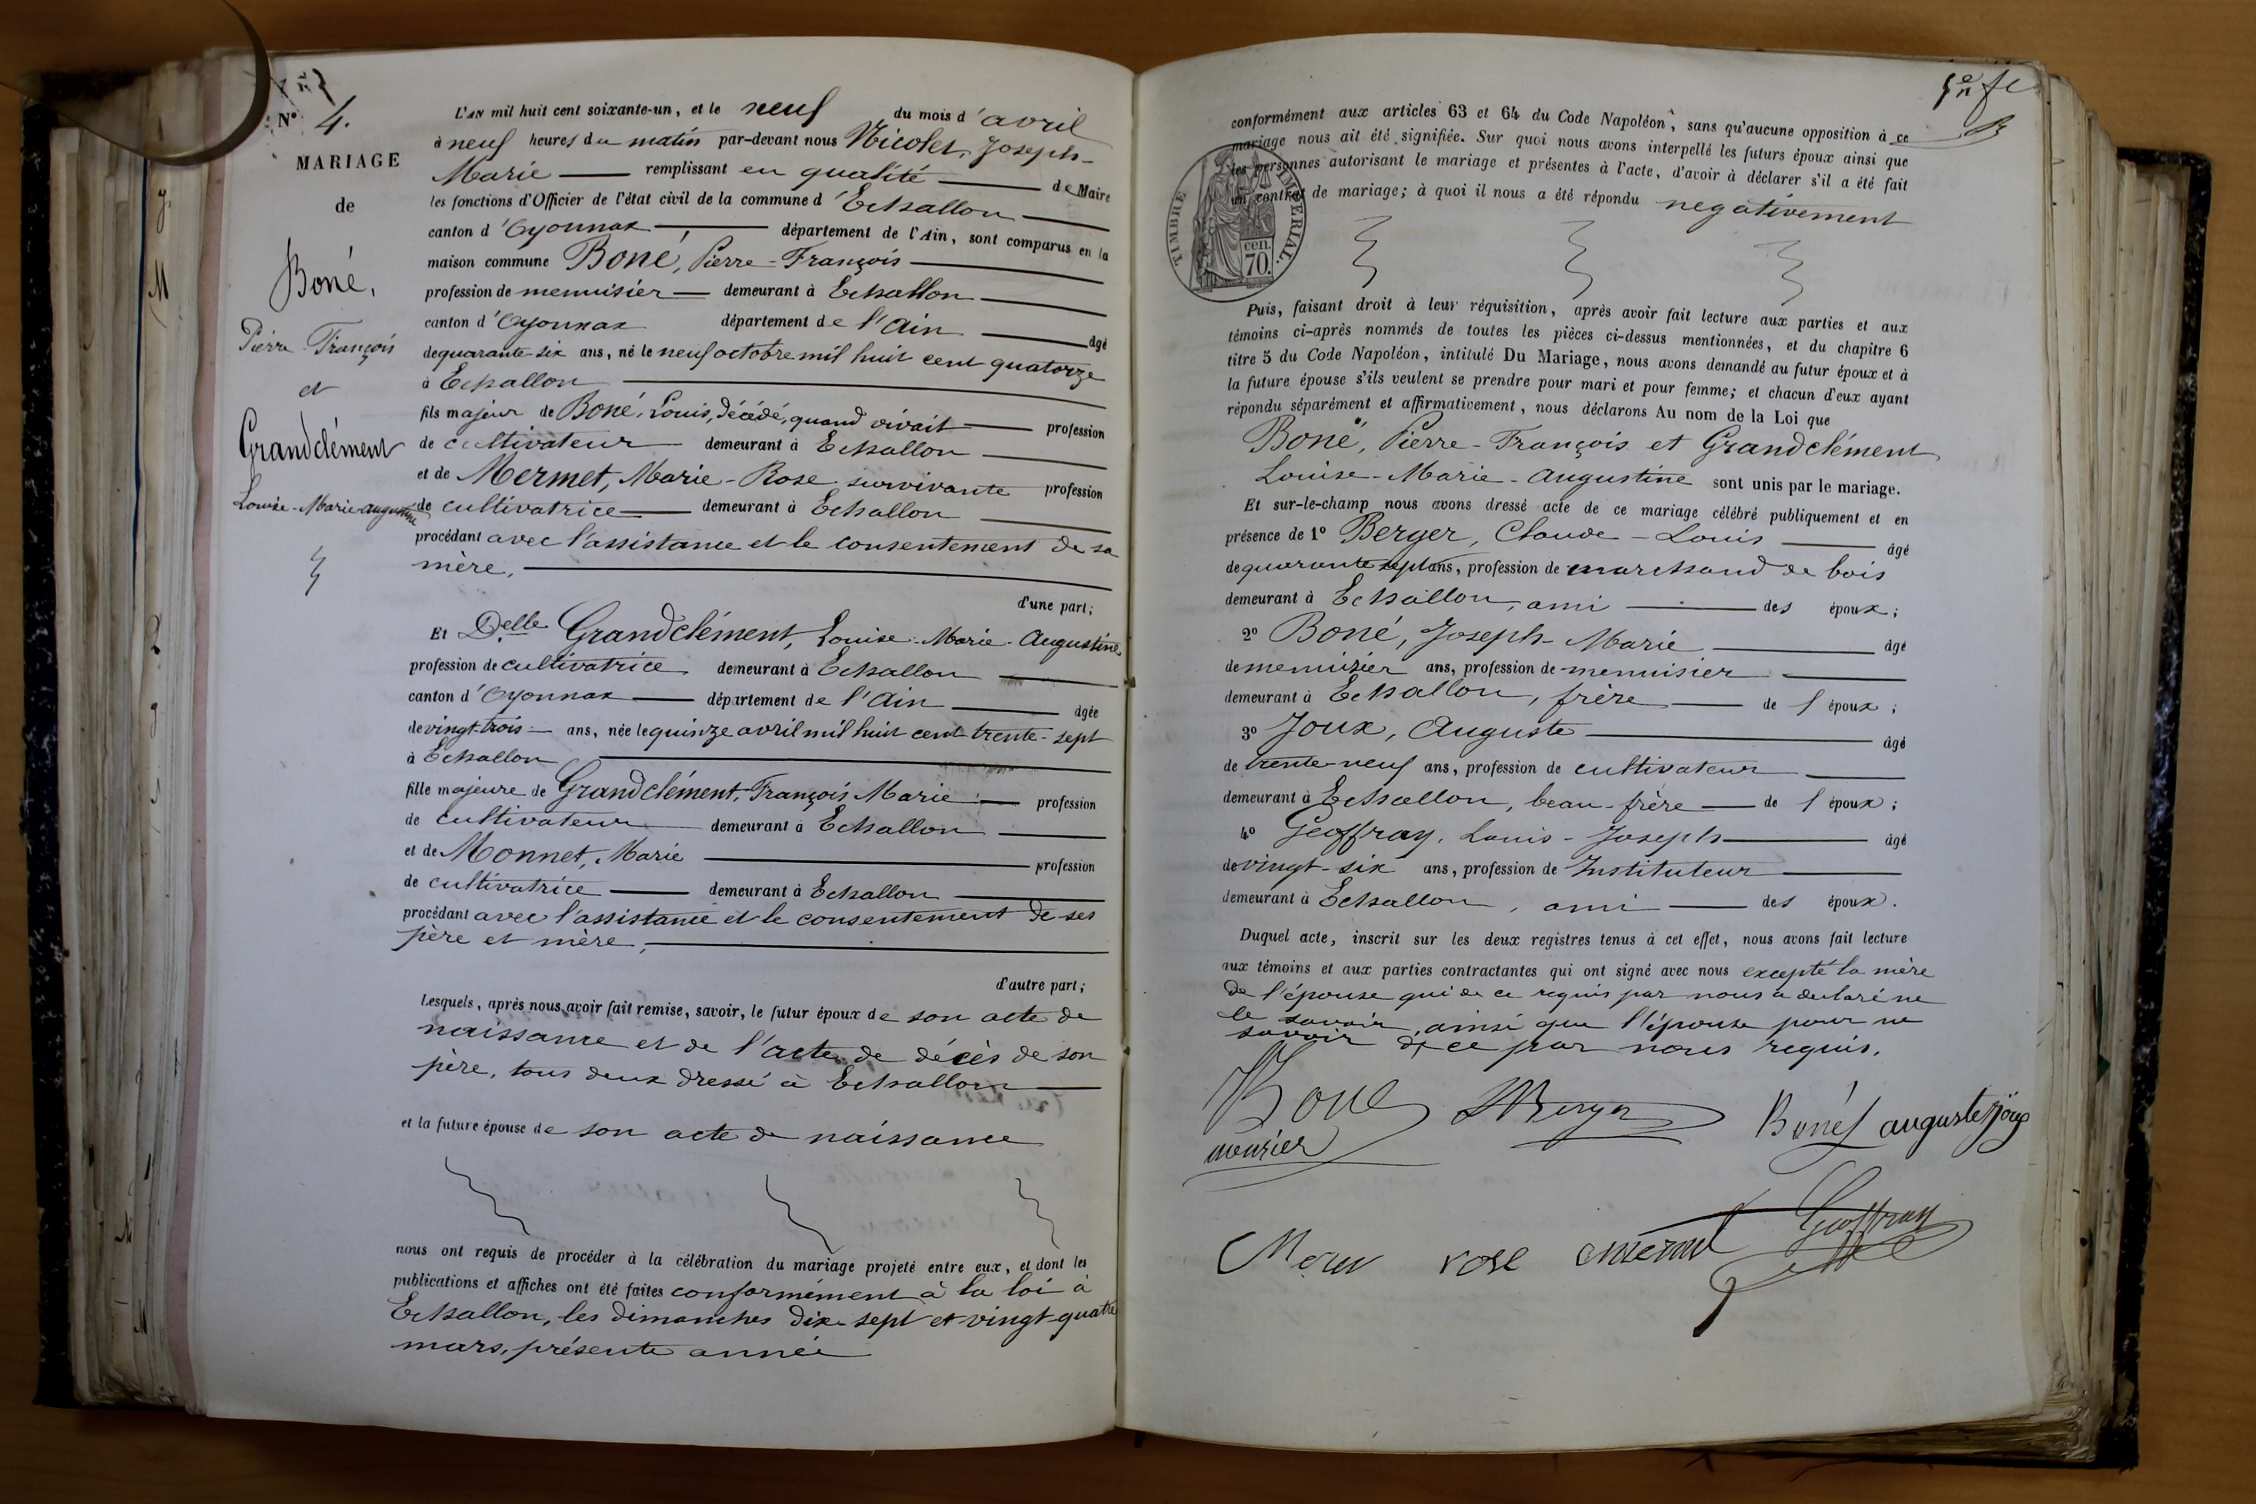 N° 4.
MARIAGE
de
Boné,
Pierre François
et
Grandclément
Louise-Marie-Augustine
L'AN mil huit cent soixante-un, et le neuf du mois d'avril
à neuf heures du matin par-devant nous Nicolet, Joseph-
Marie remplissant en qualité de Maire
les fonctions d'Officier de l'état civil de la commune d'Echallon
canton d'Oyonnax, département de l'Ain, sont comparus en la
maison commune Boné, Pierre-François
profession de menuisier demeurant à Echallon
canton d'Oyonnax département de l'Ain âgé
de quarante-six ans, né le neuf octobre mil huit cent quatorze
à Echallon
fils majeur de Boné, Louis, décédé, quand vivait profession
de cultivateur demeurant à Echallon
et de Mermet, Marie-Rose survivante profession
de cultivatrice demeurant à Echallon
procédant avec l'assistance et le consentement de sa
mère,
d'une part;
Et Delle Grandclément, Louise-Marie-Augustine
profession de cultivatrice demeurant à Echallon
canton d'Oyonnax département de l'Ain âgée
de vingt-trois ans, née le quinze avril mil huit cent trente-sept
à Echallon
fille majeure de Grandclément, François Marie profession
de cultivateur demeurant à Echallon
et de Monnet, Marie profession
de cultivatrice demeurant à Echallon
procédant avec l'assistance et le consentement de ses
père et mère,
d'autre part;
Lesquels, après nous avoir fait remise, savoir, le futur époux de son acte de
naissance et de l'acte de décès de son
père, tous deux dressé à Echallon
et la future épouse de son acte de naissance
nous ont requis de procéder à la célébration du mariage projeté entre eux, et dont les
publications et affiches ont été faites conformément à la loi à
Echallon, les dimanches dix-sept et vingt-quatre
mars, présente année
conformément aux articles 63 et 64 du Code Napoléon, sans qu'aucune opposition à ce
mariage nous ait été signifiée. Sur quoi nous avons interpellé les futurs époux ainsi que
les personnes autorisant le mariage et présentes à l'acte, d'avoir à déclarer s'il a été fait
un contrat de mariage; à quoi il nous a été répondu negativement
TIMBRE IMPERIAL.
cen.
70.
Puis, faisant droit à leur réquisition, après avoir fait lecture aux parties et aux
témoins ci-après nommés de toutes les pièces ci-dessus mentionnées, et du chapitre 6
titre 5 du Code Napoléon, intitulé Du Mariage, nous avons demandé au futur époux et à
la future épouse s'ils veulent se prendre pour mari et pour femme; et chacun d'eux ayant
répondu séparément et affirmativement, nous déclarons Au nom de la Loi que
Boné, Pierre-François et Grandclément
Louise-Marie-Augustine sont unis par le mariage.
Et sur-le-champ nous avons dressé acte de ce mariage célébré publiquement et en
présence de 1° Berger, Claude-Louis âgé
de quarante sept ans, profession de marchand de bois
demeurant à Echallon, ami des époux;
2° Boné, Joseph-Marie âgé
de menuisier ans, profession de menuisier
demeurant à Echallon, frère de l'époux;
3° Joux, Auguste âgé
de trente-neuf ans, profession de cultivateur
demeurant à Echallon, beau-frère de l'époux;
4° Geoffray, Louis-Joseph âgé
de vingt-six ans, profession de Instituteur
demeurant à Echallon, ami des époux.
Duquel acte, inscrit sur les deux registres tenus à cet effet, nous avons fait lecture
aux témoins et aux parties contractantes qui ont signé avec nous excepté la mère
de l'épouse qui de ce requis par nous a déclaré ne
le savoir, ainsi que l'épouse pour ne
savoir de ce par nous requis.
Boné
Berger
Boné
auguste joux
rose
mermet
Geoffray